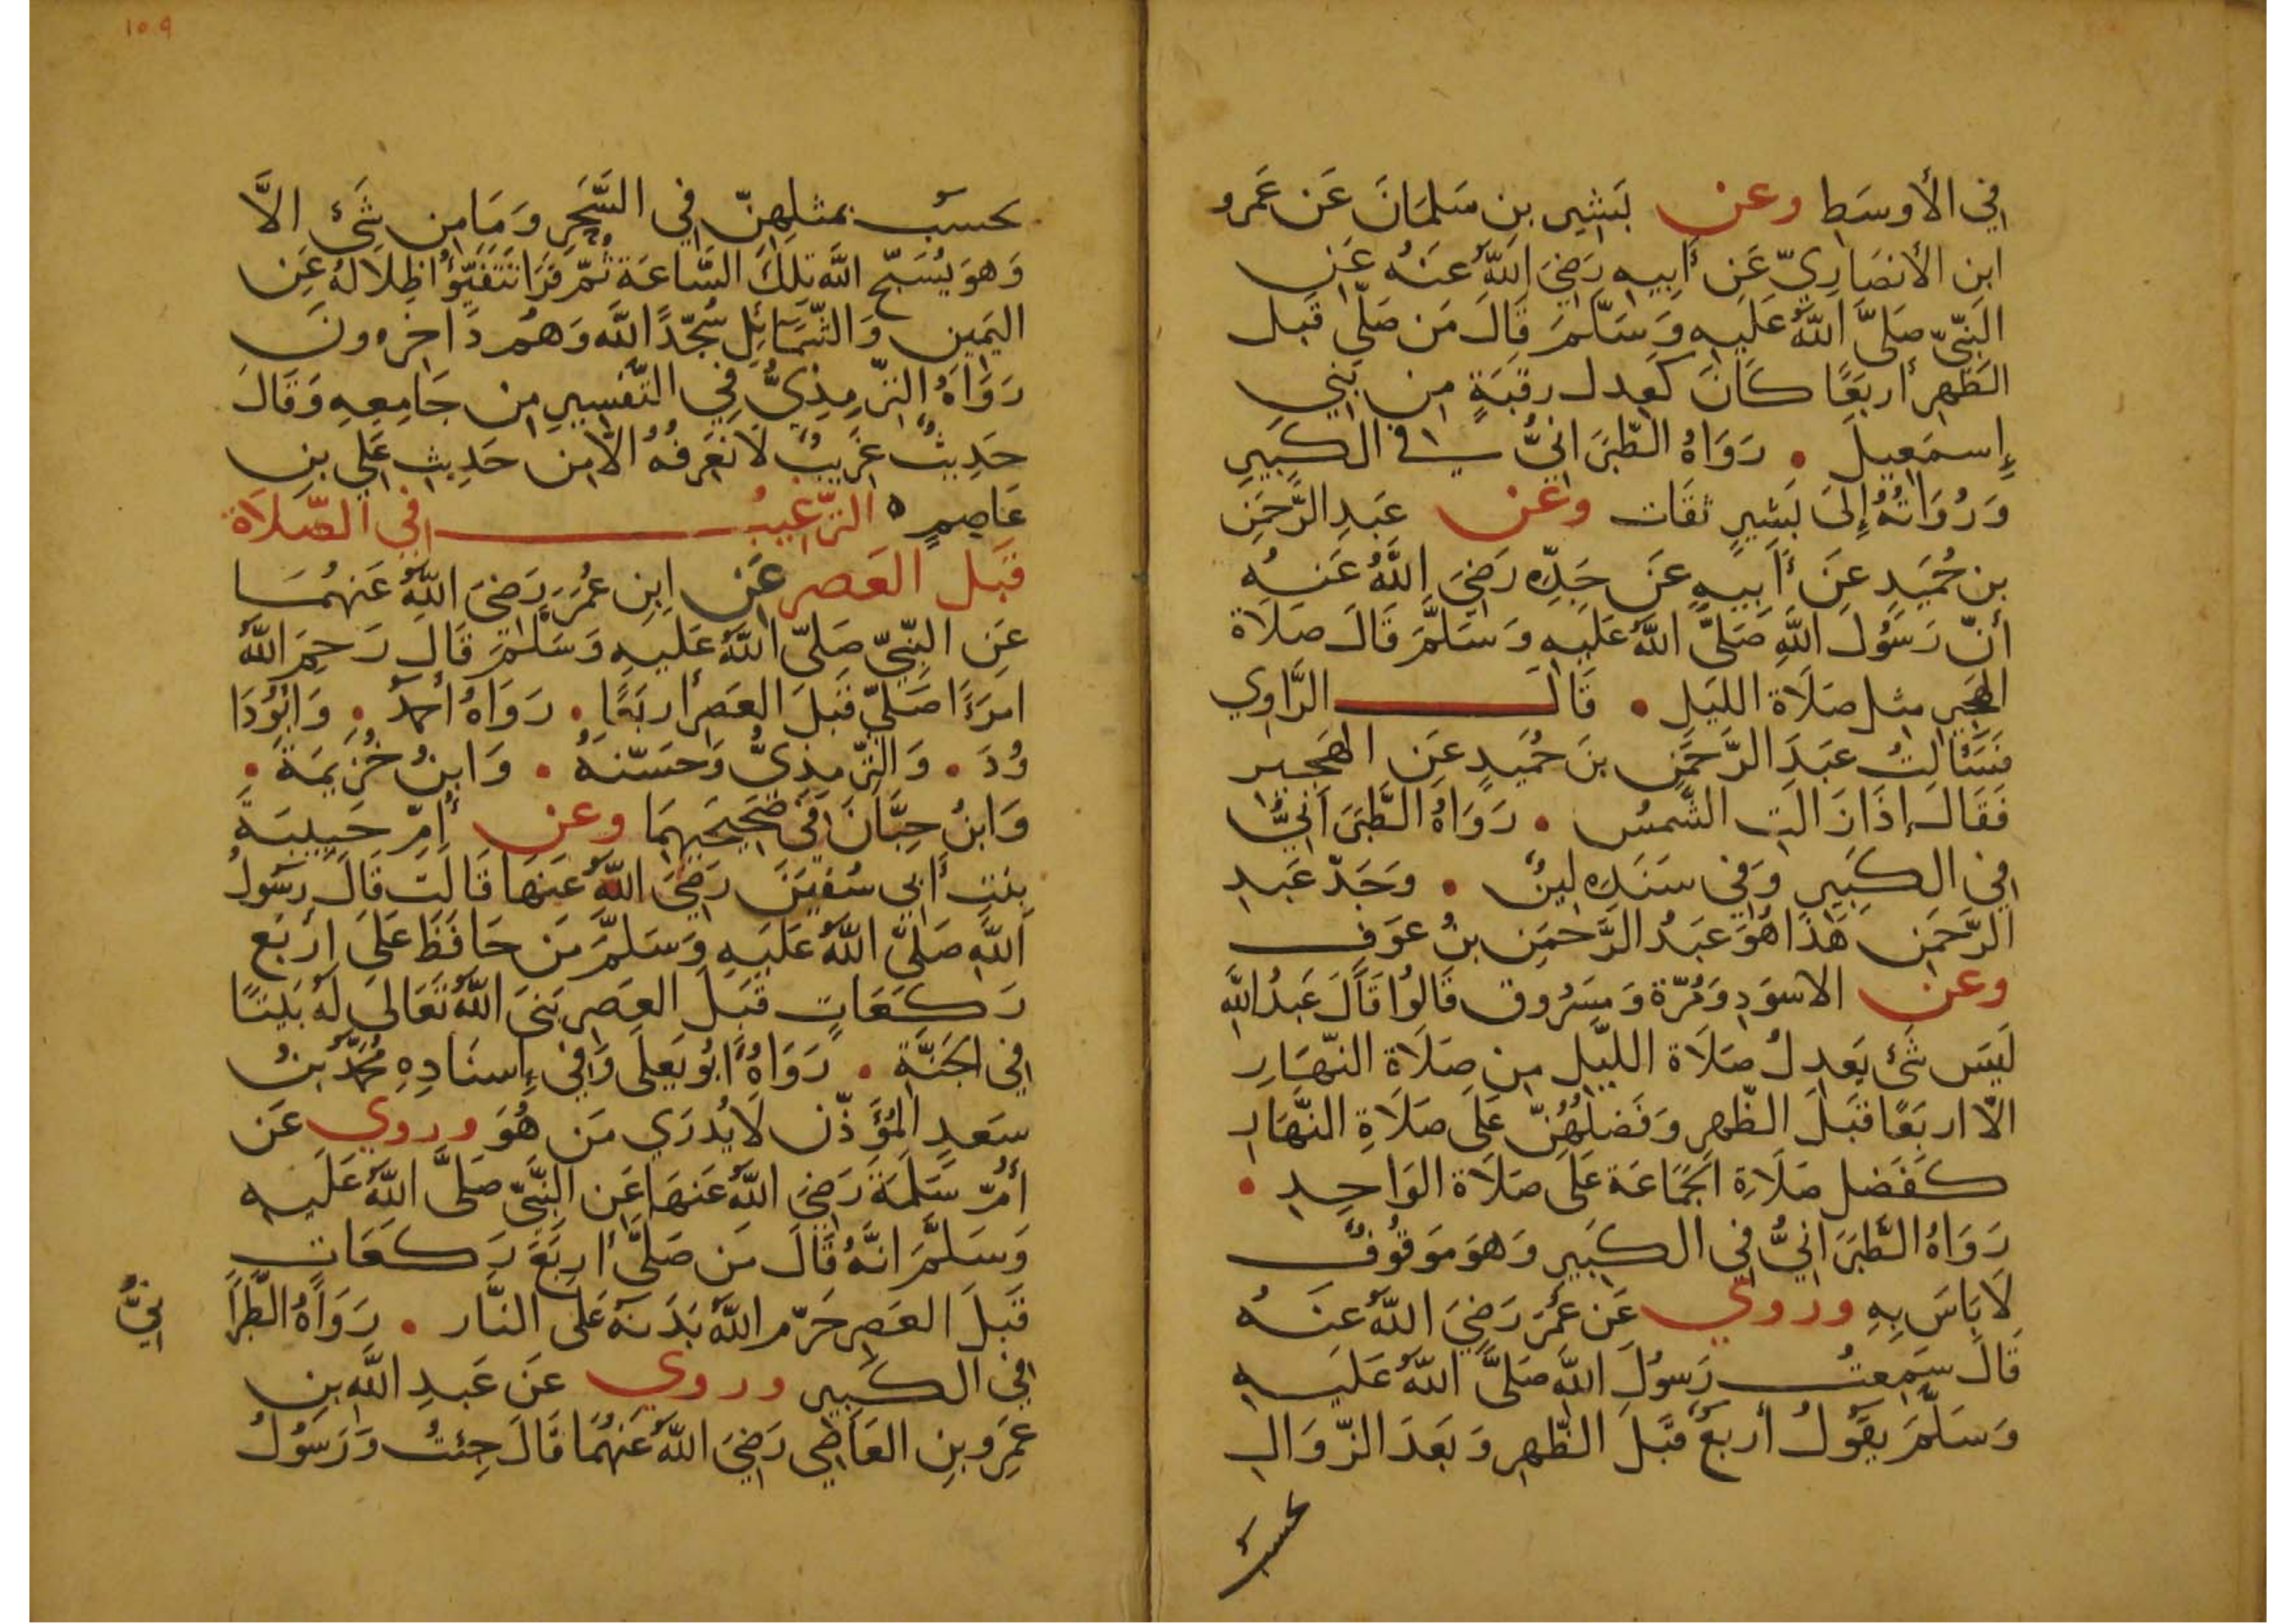 في الأوسط وعن بشير بن سلمان عن عمرو
ابن الأنصاري عن أبيه رضي الله عنه عن
النبي صلى الله عليه وسلم قال من صلى قبل
الظهر أربعا كان كعدل رقبة من بني
إسمعيل • رواه الطبراني في الكبير
ورواته إلى بشير ثقات وعن عبد الرحمن
بن حميد عن أبيه عن جده رضي الله عنه
أن رسول الله صلى الله عليه وسلم قال صلاة
الهجير مثل صلاة الليل • قال الراوي
فسألت عبد الرحمن بن حميد عن الهجير
فقال إذا زالت الشمس • رواه الطبراني
في الكبير وفي سنده لين • وجد عبد
الرحمن هذا هو عبد الرحمن بن عوف
وعن الاسود ومرة ومسروق قالوا قال عبد الله
ليس شئ يعدل صلاة الليل من صلاة النهار
الا اربعا قبل الظهر وفضلهن على صلاة النهار
كفضل صلاة الجماعة على صلاة الواحد •
رواه الطبراني في الكبير وهو موقوف
لا باس به وروي عن عمر رضي الله عنه
قال سمعت رسول الله صلى الله عليه
وسلم يقول أربع قبل الظهر وبعد الزوال
تحسب
١٠٩
تحسب بمثلهن في السحر وما من شئ الا
وهو يسبح الله تلك الساعة ثم قرا تتفيؤا ظلاله عن
اليمين والشمائل سجدا لله وهم داخرون
رواه الترمذي في التفسير من جامعه وقال
حديث غريب لا نعرفه الا من حديث علي بن
عاصم ه الترغيب في الصلاة
قبل العصر عن ابن عمر رضي الله عنهما
عن النبي صلى الله عليه وسلم قال رحم الله
امرءا صلى قبل العصر أربعا • رواه أحمد • وابو دا
ود • والترمذي وحسنه • وابن خزيمة •
وابن حبان في صحيحيهما وعن أم حبيبة
بنت أبي سفين رضي الله عنها قالت قال رسول
الله صلى الله عليه وسلم من حافظ على أربع
ركعات قبل العصر بنى الله تعالى له بيتا
في الجنة • رواه أبو يعلى وفي إسناده محمد بن
سعد المؤذن لا يدري من هو وروي عن
أم سلمة رضي الله عنها عن النبي صلى الله عليه
وسلم انه قال من صلى أربع ركعات
قبل العصر حرم الله بدنه على النار • رواه الطبرا
ني
في الكبير وروي عن عبد الله بن
عمرو بن العاصي رضي الله عنهما قال جئت ورسول